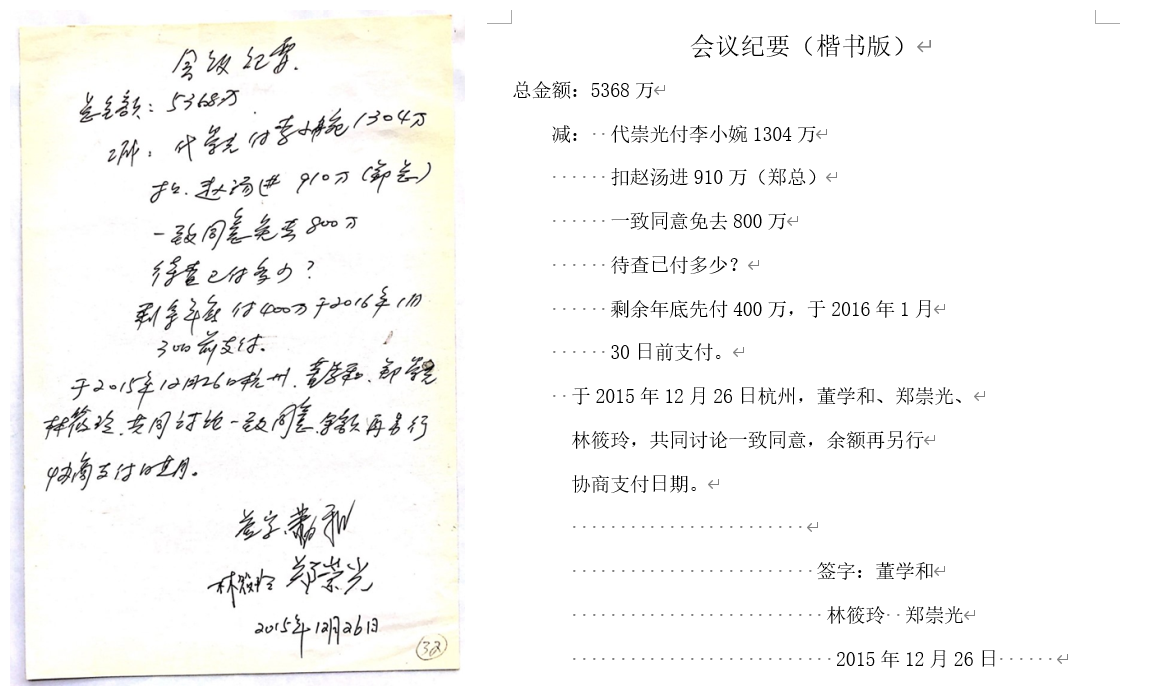 会议纪要
总金额：5368万
减：代崇光付李小婉1304万
扣赵汤进910万（郑总）
一致同意免去800万
待查已付多少？
剩余年底付400万于2016年1月
30日前支付。
于2015年12月26日杭州，董学和、郑崇光
林筱玲，共同讨论一致同意，余额再另行
协商支付日期。
签字：董学和
林筱玲 郑崇光
2015年12月26日
32
会议纪要（楷书版）
总金额：5368万
减：代崇光付李小婉1304万
扣赵汤进910万（郑总）
一致同意免去800万
待查已付多少？
剩余年底先付400万，于2016年1月
30日前支付。
于2015年12月26日杭州，董学和、郑崇光、
林筱玲，共同讨论一致同意，余额再另行
协商支付日期。
签字：董学和
林筱玲 郑崇光
2015年12月26日